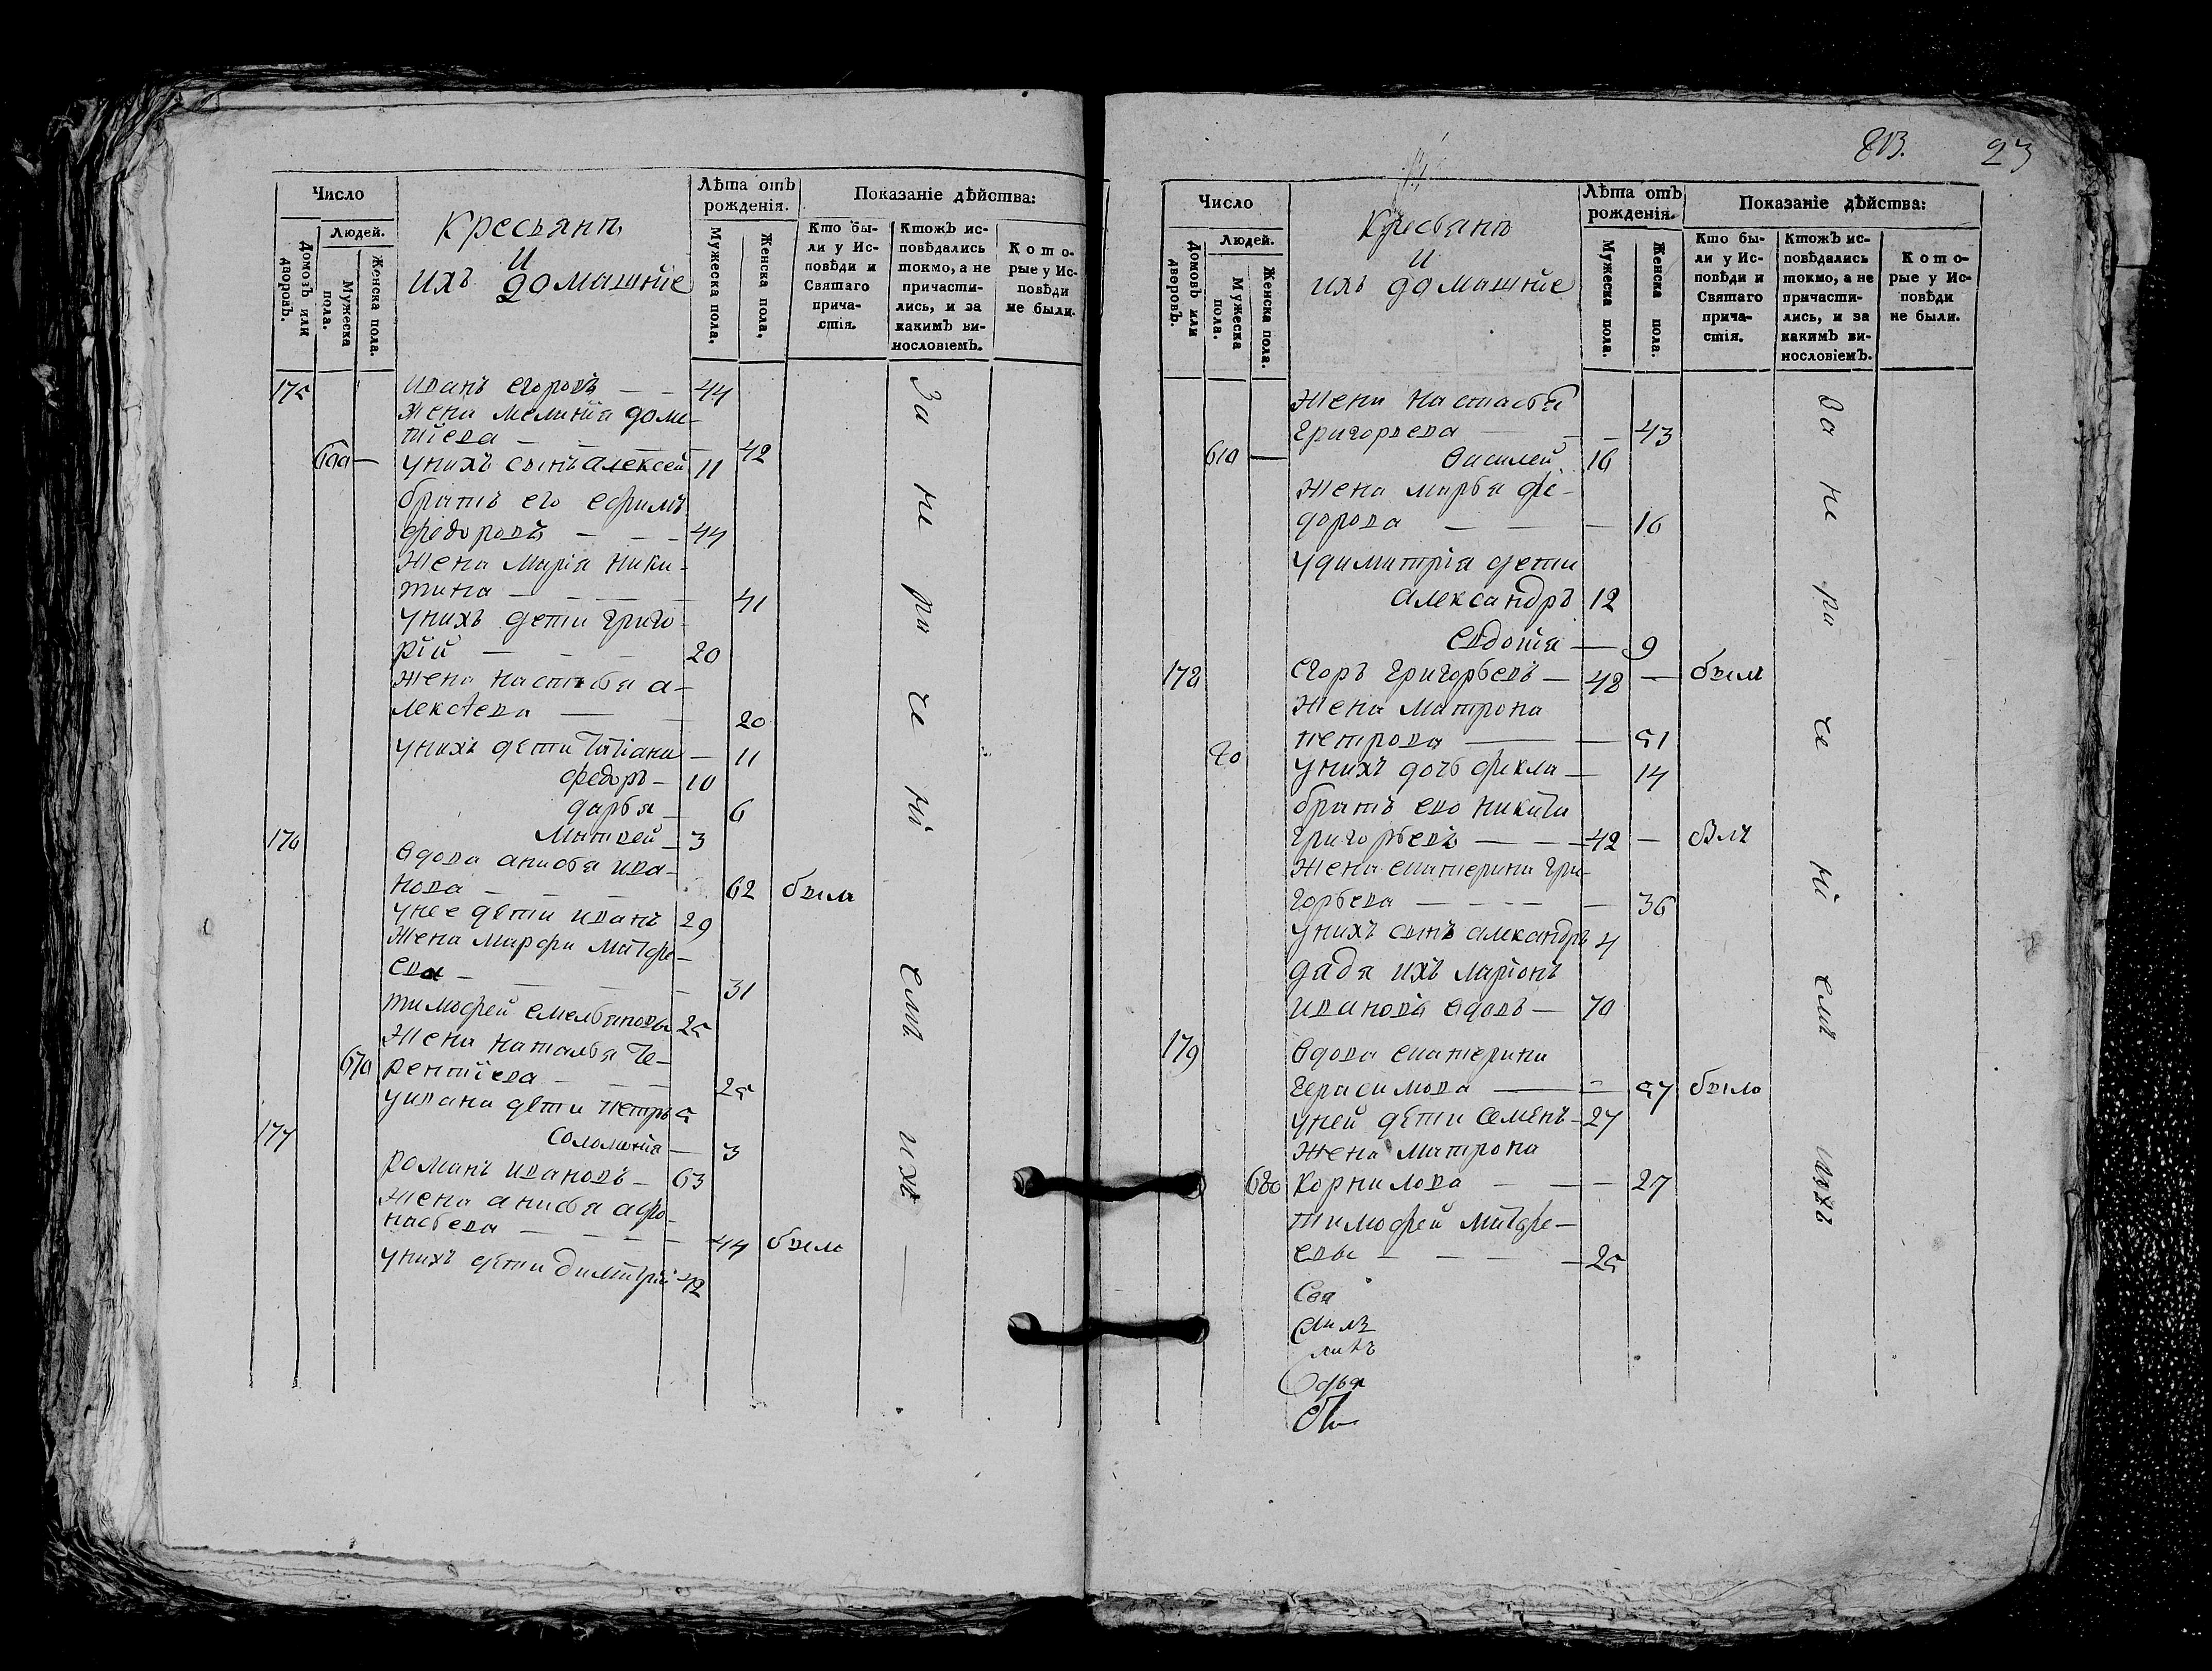 Число
Лѣта отъ рожденія.
Показаніе дѣйства:
Людей.
Домовъ или дворовъ.
Мужеска пола.
Женска пола.
Кресьянъ
и
ихъ домашніе
Мужеска пола.
Женска пола.
Кто бы-
ли у Ис-
повѣди и
Святаго
прича-
стія.
Ктожъ ис-
повѣдались
токмо, а не
причасти-
лись, и за
какимъ ви-
нословіемъ.
Кото-
рые у Ис-
повѣди
не были.
175 иванъ егоровъ — — 44
жена меланія доме-
нтіева — — — 42
унихъ сынъ алексей 11
братъ его ефимъ
федоровъ — — — 44
жена марія ники-
тина — — — — 41
унихъ дети григо
рій — — — 20
жена настасья а-
лексѣева — — 20
унихъ дети татіана — 11
федоръ — 10
дарья — 6
176 матвей — 3
вдова анисья ива-
нова — — — 62 были
унее дети иванъ 29
жена марфа матфе-
ева — — — — 31
тимофей емельяновъ 25
жена наталья те-
670 рентіева — — — 25
уивана дети петръ 5
177 соломонія — 3
романъ ивановъ — 63
жена анисья афо-
насьева — — — — 44 были
унихъ дети димитрій 42
За не ри че ні емъ ихъ
813. 23
Число
Лѣта отъ рожденія.
Показаніе дѣйства:
Людей.
Домовъ или дворовъ.
Мужеска пола.
Женска пола.
Кресьянъ
и
ихъ домашніе
Мужеска пола.
Женска пола.
Кто бы-
ли у Ис-
повѣди и
Святаго
прича-
стія.
Ктожъ ис-
повѣдались
токмо, а не
причасти-
лись, и за
какимъ ви-
нословіемъ.
Кото-
рые у Ис-
повѣди
не были.
жена настасья
григорьева — — — 43
610 — василей 16
жена марья фе-
дорова — — — 16
удимитрія дети
александръ 12
евдотія — 9
178 егоръ григорьевъ — 48 — были
жена матрона
петрова — — 51
унихъ дочь фекла — 14
братъ ево никита
григорьевъ — — — 42 —
жена екатерина гри-
горьева — — — — 36
унихъ сынъ алекандръ 4
дядя ихъ ларіонъ
ивановъ вдовъ — 70
179 вдова екатерина
герасимова — — 57 было
уней дети семенъ — 27
жена матрона
680 корнилова — — — 27
тимофей матфе-
евъ — — — — 25
За не ра че ні емъ ихъ